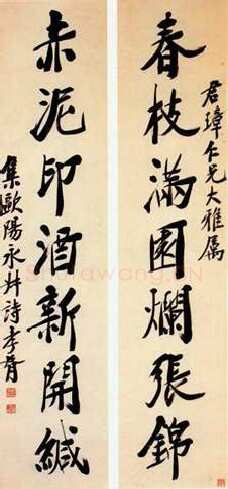 君璋仁兄大雅属
春枝滿園爛張錦
赤泥印酒新開緘
集歐陽永叔詩李